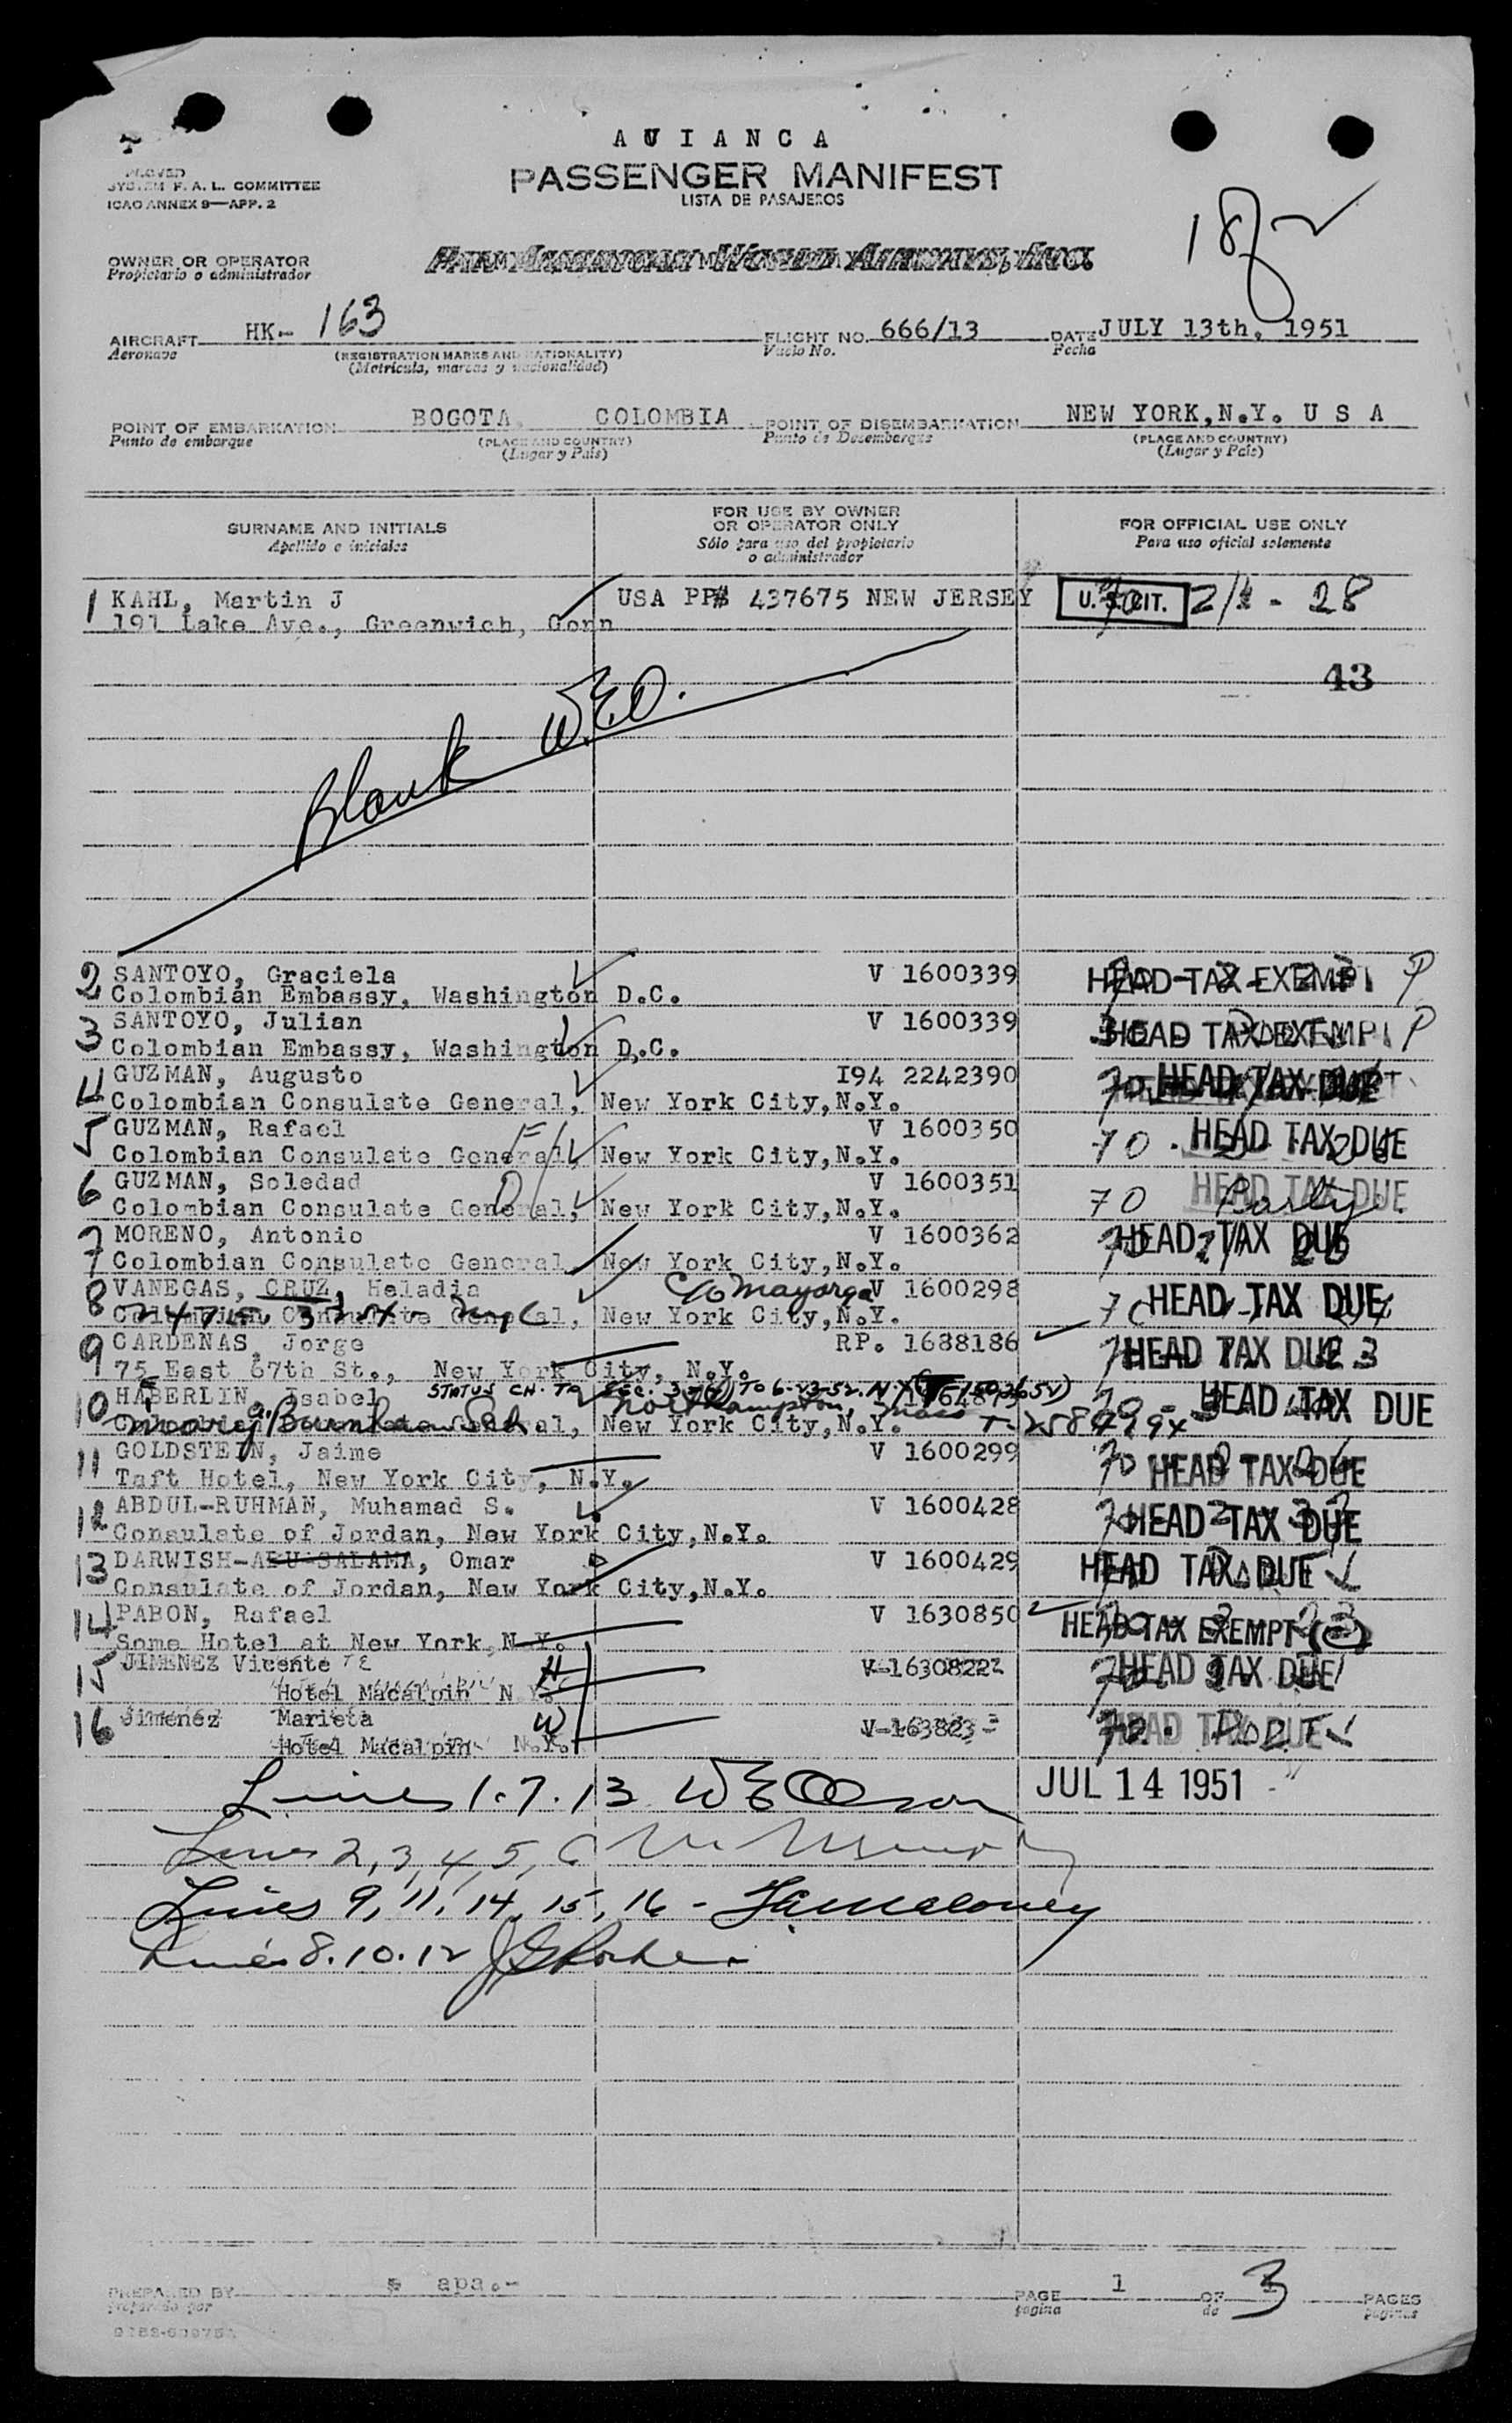 AVIANCA
PASSENGER MANIFEST
LISTA DE PASAJEROS
SYSTEM F. A. L. COMMITTEE
ICAO ANNEX 9—APP. 2
18
OWNER OR OPERATOR
Propietario o administrador
AIRCRAFT HK- 163 FLIGHT NO. 666/13 DATE JULY 13th, 1951
Aeronave (REGISTRATION MARKS AND NATIONALITY) Vuelo No. Fecha
(Matricula, marcas y nacionalidad)
POINT OF EMBARKATION BOGOTA, COLOMBIA POINT OF DISEMBARKATION NEW YORK,N.Y. U S A
Punto de embarque (PLACE AND COUNTRY) Punto de Desembarque (PLACE AND COUNTRY)
(Lugar y Pais) (Lugar y Pais)
SURNAME AND INITIALS FOR USE BY OWNER OR OPERATOR ONLY FOR OFFICIAL USE ONLY
Apellido e iniciales Sólo para uso del propietario o administrador Para uso oficial solamente
1 KAHL, Martin J USA PP# 437675 NEW JERSEY U. S. CIT. - 28
191 Lake Ave., Greenwich, Conn
43
Blank W.E.O.
2 SANTOYO, Graciela V 1600339 HEAD TAX EXEMPT P
Colombian Embassy, Washington D.C.
3 SANTOYO, Julian V 1600339 HEAD TAX EXEMPT P
Colombian Embassy, Washington D.C.
4 GUZMAN, Augusto I94 2242390 70 HEAD TAX DUE
Colombian Consulate General, New York City,N.Y.
5 GUZMAN, Rafael V 1600350 70 HEAD TAX DUE
Colombian Consulate General, New York City,N.Y.
6 GUZMAN, Soledad V 1600351 70 HEAD TAX DUE
Colombian Consulate General, New York City,N.Y.
7 MORENO, Antonio V 1600362 HEAD TAX DUE
Colombian Consulate General New York City,N.Y.
8 VANEGAS, CRUZ, Heladia c/o Mayorga V 1600298 HEAD TAX DUE
Colombian Consulate General, New York City,N.Y.
9 CARDENAS, Jorge RP. 1688186 HEAD TAX DUE
75 East 67th St., New York City, N.Y.
10 HABERLIN, Isabel STATUS CH. TO HEAD TAX DUE
Mary Burnham Sch. Northampton, Mass New York City,N.Y.
11 GOLDSTEIN, Jaime V 1600299 70 HEAD TAX DUE
Taft Hotel, New York City, N.Y.
12 ABDUL-RUHMAN, Muhamad S. V 1600428 HEAD TAX DUE
Consulate of Jordan, New York City,N.Y.
13 DARWISH-ABU-SALAMA, Omar V 1600429 HEAD TAX DUE
Consulate of Jordan, New York City,N.Y.
14 PABON, Rafael V 1630850 HEAD TAX EXEMPT
Some Hotel at New York,N.Y.
15 JIMENEZ Vicente H V-1630822 HEAD TAX DUE
Hotel Macalpin N.Y.
16 Jimenez Marieta W V-163823 HEAD TAX DUE
Hotel Macalpin N.Y.
Lines 1.7.13 W E Olson JUL 14 1951
Lines 2,3,4,5,6
Lines 9, 11, 14, 15, 16 - Maloney
Lines 8.10.12
PREPARED BY apa.- PAGE 1 OF 3 PAGES
Preparado por pagina de paginas